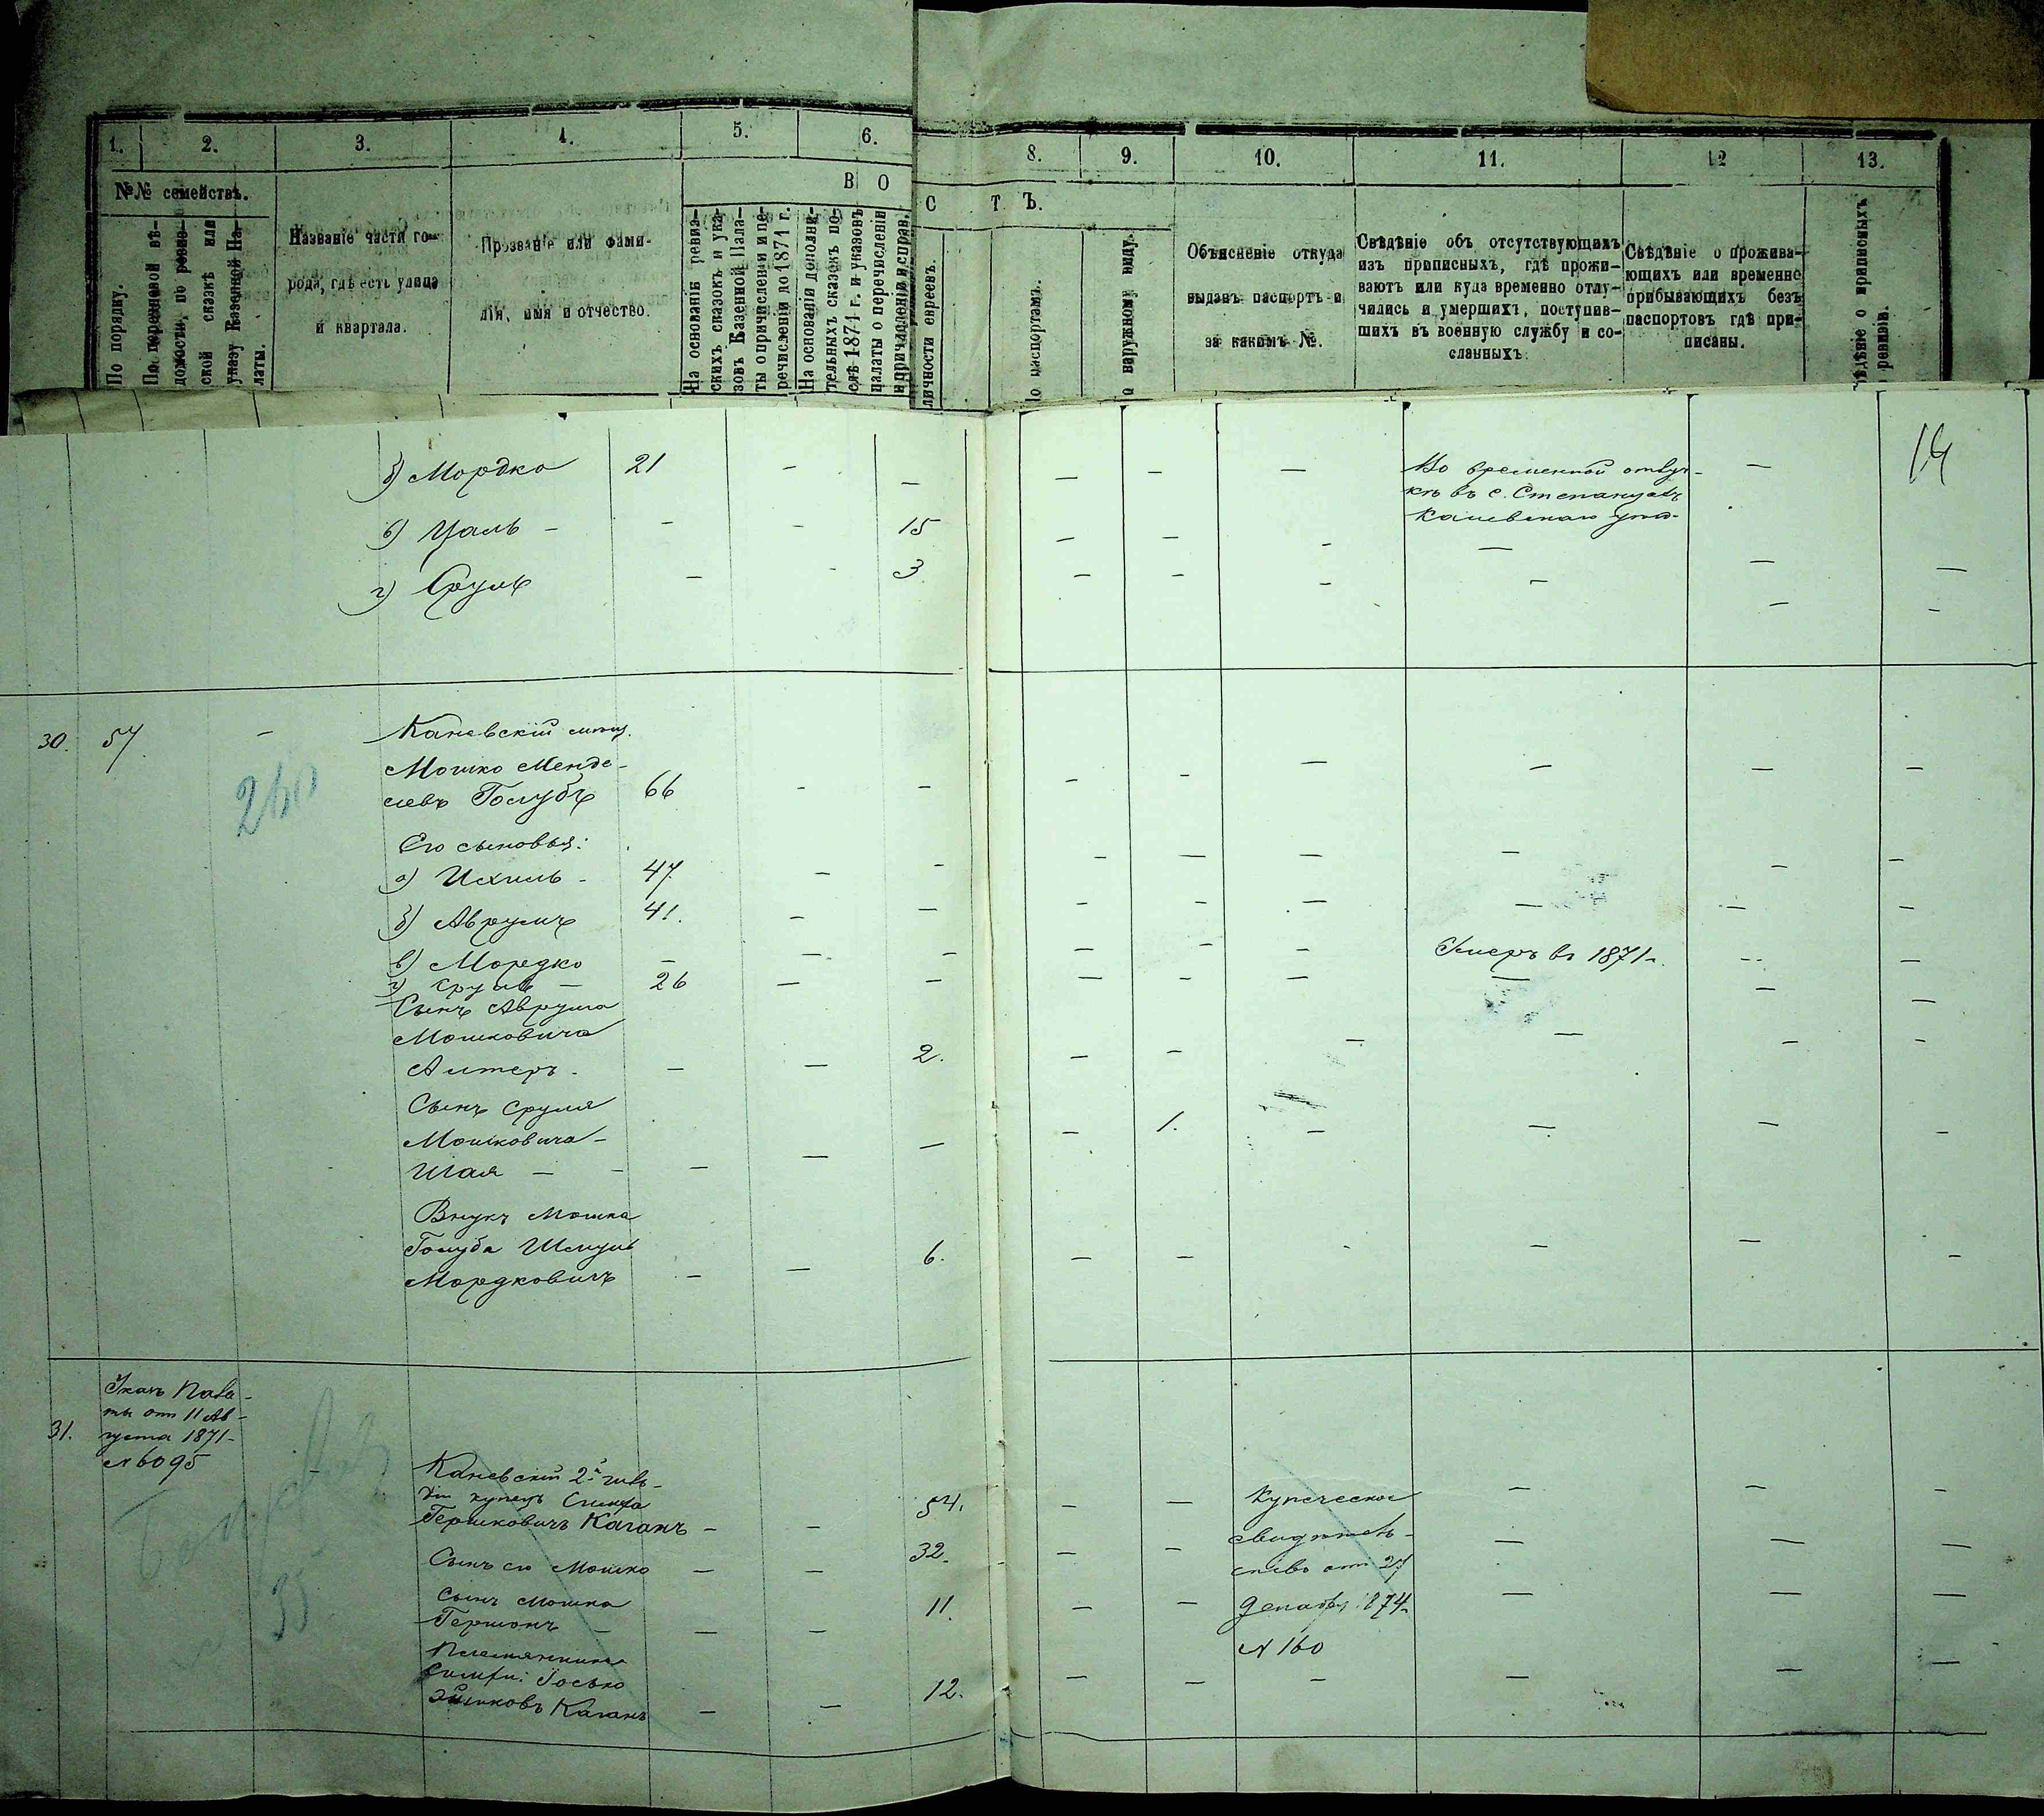 1.
2.
3.
4.
5.
6.
8.
9.
10.
11.
12
13.
№№ семействъ.
В О
С Т Ъ.
По порядку.
По перечневой вѣ-
домости, по ревиз-
ской сказкѣ или
указу Казенной Па-
латы.
Названіе части го-
рода, гдѣ есть улица
и квартала.
Прозваніе или фами-
лія, имя и отчество.
На основаніи ревиз-
скихъ сказокъ и ука-
зовъ Казенной Пала-
ты о причисленіи и пе-
речисленіи до 1871 г.
На основаніи дополни-
тельныхъ сказокъ по-
слѣ 1871 г. и указовъ
палаты о перечисленіи
и причисленіи и справ.
личности евреевъ.
о паспортамъ.
о наружному виду.
Объясненіе откуда
выданъ паспортъ и
за какимъ №.
Свѣдѣніе объ отсутствующихъ
изъ приписныхъ, гдѣ прожи-
ваютъ или куда временно отлу-
чились и умершихъ, поступив-
шихъ въ военную службу и со-
сланныхъ.
Свѣдѣніе о прожива-
ющихъ или временно
прибывающихъ безъ
паспортовъ гдѣ при-
писаны.
ѣдѣніе о приписныхъ
ревизіи.
14
б) Мордко 21 — — — — — Во временной отлуч-
кѣ въ с. Степанцахъ
Каневскаго уѣз. —
в) Цаль - — — 15 — — — — — —
г) Сруль — — 3 — — — — — —
30. 57. — Каневскій мѣщ.
260
Мошко Менде-
левъ Голубъ 66 — — — — — — — —
Его сыновья:
а) Ихиль - 47 — — — — — — — —
б) Аврумъ 41. — — — — — — — —
в) Мордко — — — — — — Умеръ въ 1871 — —
г) Сруль — 26 — — — — — — — —
Сынъ Аврума
Мошковича
Алтеръ - — — 2. — — — — — —
Сынъ Сруля
Мошковича -
Шая — — — — — 1. — — — —
Внукъ Мошка
Голуба Шмуль
Мордковичъ — — 6. — — — — — —
31. Указъ Пала-
ты отъ 11 Ав-
густа 1871
№ 6095
35
Каневскій 2й гиль-
діи купецъ Симха
Гершковичъ Каганъ — — 54. — —
Купеческое
свидѣтель-
ство отъ 27
Декабря 1874
№ 160
Сынъ его Мошко — — 32. — — — — —
Сынъ Мошка
Гершонъ — — — 11. — — — — —
Племянникъ
Симхи: Іосько
Эйшиковъ Каганъ — — 12. — — — — — —